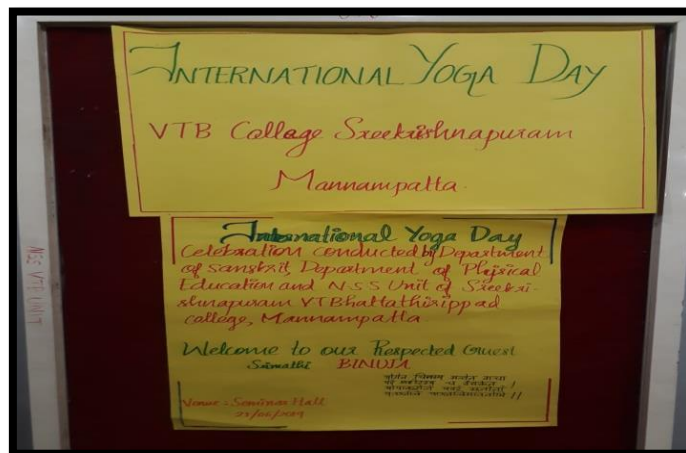 INTERNATIONAL YOGA DAY
VTB Collage Sreekrishnapuram
Mannampatta.
International Yoga Day
Celebration conducted by Department
of Sanskrit, Department of Physical
Education and NSS Unit of Sreekri-
shnapuram VTBhattathirippad
college, Mannampatta
Welcome to our Respected Guest
Srimathi BINUJA
Venue: Seminar Hall
21/06/2019
NSS VTB UNIT